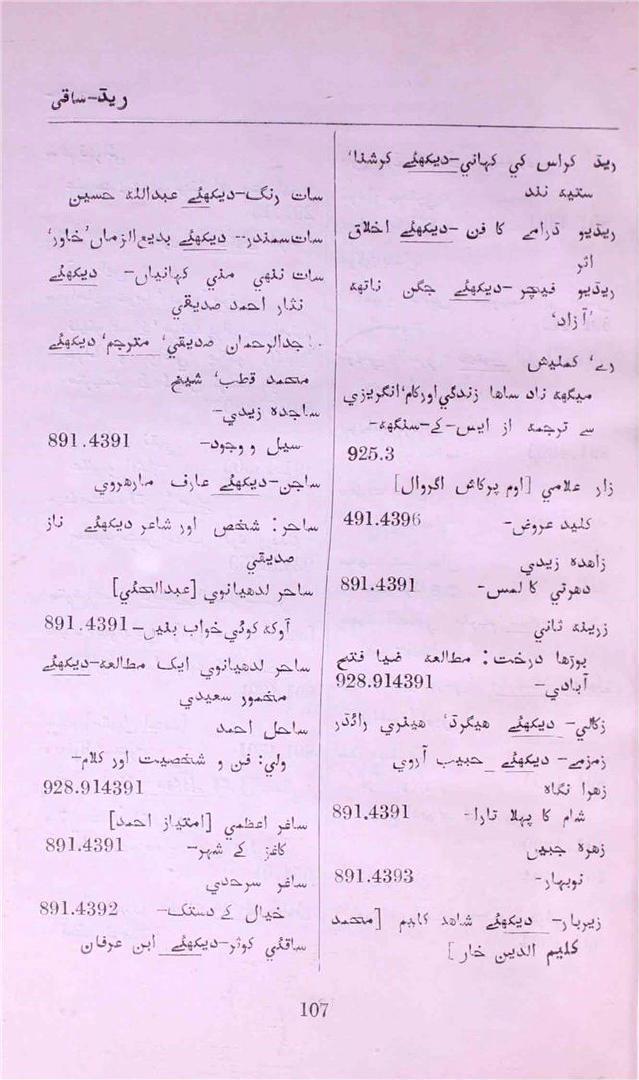 ریڈ-ساقی
ریڈ کراس کی کہانی-دیکھئے کرشنا'
ستیہ نند
ریڈیو ڈرامے کا فن -دیکھئے اخلاق
اثر
ریڈیو فیچر-دیکھئے جگن ناتھ
'آزاد'
رے' کملیش
میگھ ناد ساھا زندگی اور کام' انگریزی
سے ترجمہ از ایس-کے-سنگھ-
925.3
زار علامی [اوم پرکاش اگروال]
کلید عروض- 491.4396
زاھدہ زیدی
دھرتی کا لمس- 891.4391
زرینہ ثانی
بوڑھا درخت: مطالعہ ضیا فتح
آبادی- 928.914391
زکالی- دیکھئے ھیگرڈ' ھینری رائڈر
زمزمے- دیکھئے حبیب آروی
زھرا نگاہ
شام کا پہلا تارا- 891.4391
زھرہ جبیں
نوبہار- 891.4393
زیربار- دیکھئے شاھد کلیم [محمد
کلیم الدین خار]
سات رنگ-دیکھئے عبداللہ حسین
سات سمندر-- دیکھئے بدیع الزماں' خاور'
سات ننھی منی کہانیاں- دیکھئے
نثار احمد صدیقی
ساجدالرحمان صدیقی' مترجم' دیکھئے
محمد قطب' شیخ
ساجدہ زیدی-
سیل و وجود- 891.4391
ساجن-دیکھئے عارف مارھروی
ساحر: شخص اور شاعر دیکھئے ناز
صدیقی
ساحر لدھیانوی [عبدالحئی]
آوکہ کوئی خواب بنیں- 891.4391
ساحر لدھیانوی ایک مطالعہ-دیکھئے
مخمور سعیدی
ساحل احمد
ولی: فن و شخصیت اور کلام-
928.914391
ساغر اعظمی [امتیاز احمد]
کاغز کے شہر- 891.4391
ساغر سرحدی
خیال کے دستک- 891.4392
ساقئی کوثر-دیکھئے ابن عرفان
107